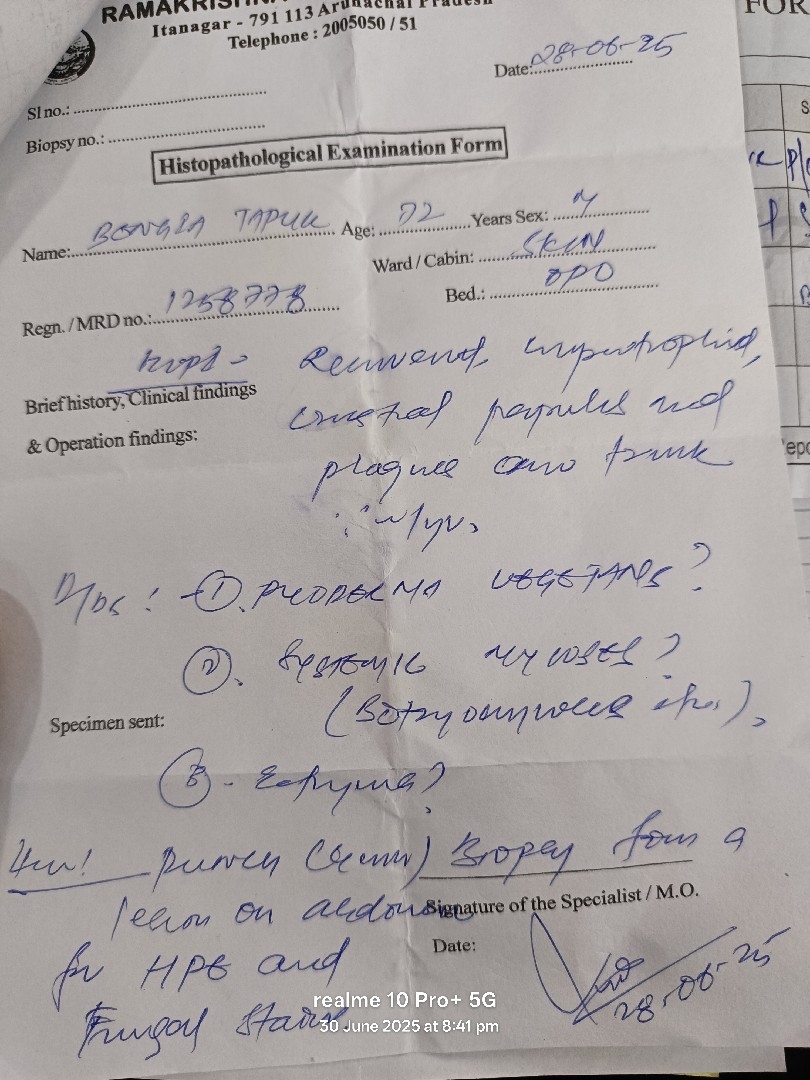 RAMAKRISHN
Itanagar - 791 113 Arunachal Pradesh
Telephone : 2005050 / 51
FOR
Date: 28-06-25
Sl no.:
Biopsy no.:
Histopathological Examination Form
Name: TAPUK Age: Years Sex:
Ward / Cabin: SKIN
Regn. / MRD no.: 1258778 Bed.: OPD
Recurrent,
Brief history, Clinical findings
crusted papules and
& Operation findings:
plaques over trunk
D/Ds : ①. PYODERMA VEGETANS?
②. SYSTEMIC MYCOSES?
Specimen sent:
③ - Ecthyma?
punch Biopsy from a
lesion on
Signature of the Specialist / M.O.
for HPE and
Date:
Fungal Stains.
28-06-25
realme 10 Pro+ 5G
30 June 2025 at 8:41 pm